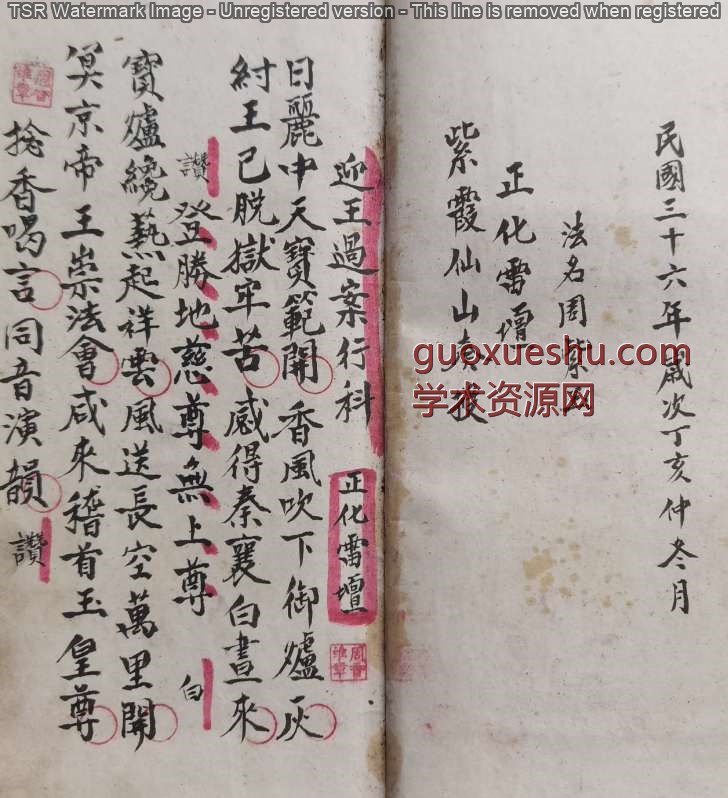 TSR Watermark Image - Unregistered version - This line is removed when registered
民國三十六年歲次丁亥仲冬月
法名周紫
正化雷壇
紫霞仙山
guoxueshu.com
学术资源网
迎王過案行科 正化雷壇
日麗中天寶範開 香風吹下御爐灰
紂王已脫獄牢苦 感得秦襄白晝來
讚 登勝地慈尊無上尊 白
寶爐纔爇起祥雲風送長空萬里開
冥京帝王崇法會咸來稽首玉皇尊
捻香喝言同音演韻 讚